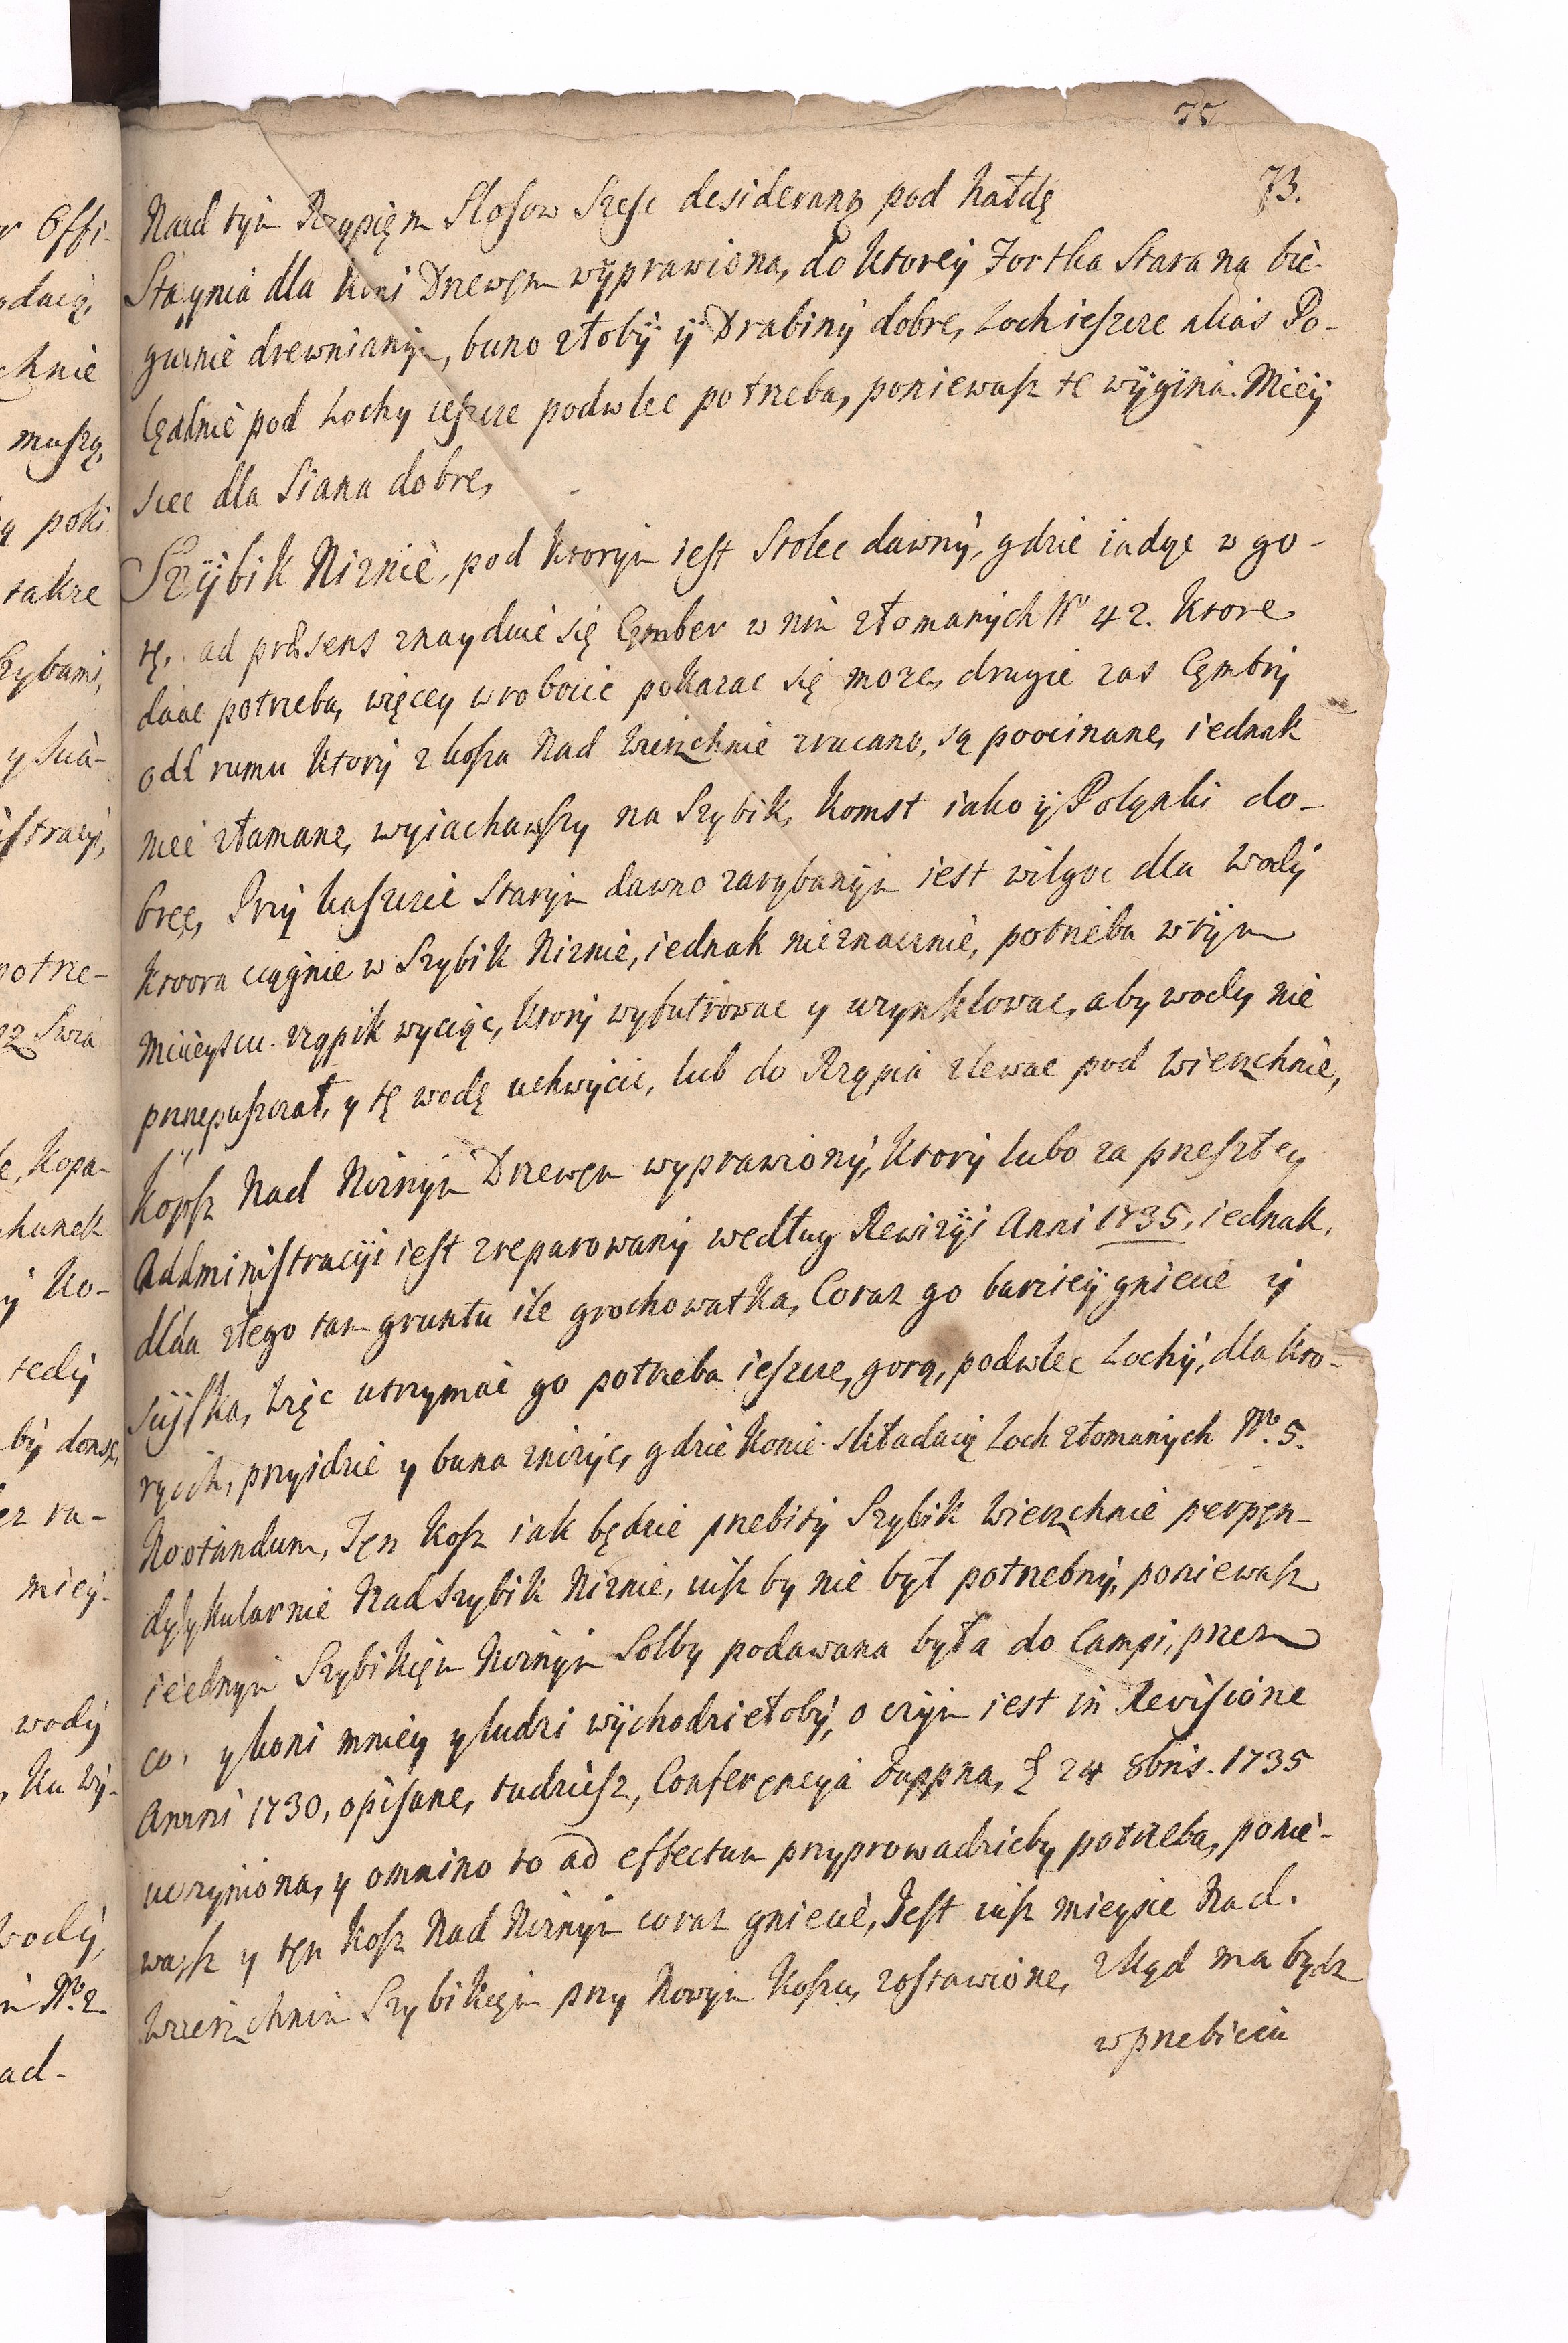 75
73.
Nad tÿm Rzypięm Slosow Szesc desideranz pod hałdę
Staynia dla koni Drzewęm wÿprawiona, do ktoreÿ Fortka Stara na bie-
gunie drewnianÿm, buno złobÿ ÿ Drabinÿ dobre, Loch ieszcze alias Po-
lędnie pod Lochy ieszcze podwlec potrzeba, poniewasz te wÿgina. Mieÿ
sce dla Siana dobre,
Szÿbik Niznie, pod ktorÿm iest Stolec dawnÿ, gdzie iadąc w go-
rę, ad præsens znayduie się Cęmber w nim złomanych No 42. ktore
daac potrzeba, więcey w robocie pokazac się moze, drugie zas Cęmbrÿ
odd rumu ktorÿ z kosza Nad Wierzchnie zrucano, są poocinane, iednak
niee złamane, wyiachawszy na Szybik, komst iako ÿ Polynki do-
bree, Przÿ kaszcie Starÿm dawno zarybanÿm iest wilgoc dla Wodÿ
ktoora ciągnie w Szybik Niznie, iednak nieznacznie, potrzeba w tÿm
mieeyscu rzypik wyciąc, ktorÿ wyfutrowac y wrynklowac, aby wody nie
przepuszczał, y tę wodę uchwÿcic, lub do Rząpia zlewac pod Wierzchnie,
Kossz Nad Niznÿm Drzewęm wyprawionÿ, ktorÿ lubo za przeszłey
Addministracÿi iest zreparowanÿ według Rewizÿi Anni 1735, iednak
dlaa złego tam gruntu ile grochowatka, Coraz go barzieÿ gniecie ÿ
sciÿska, Więc utrzymac go potrzeba ieszcze, gorą, podwlec Lochÿ, dla kto-
rych, przyidzie y buna znizyc, gdzie konie składaią Loch złomanych No. 5.
Nootandum, Tęn kosz iak będzie przebitÿ Szybik Wierzchnie perpęn-
dyykularnie Nad Szybik Niznie, iusz by nie był potrzebnÿ, poniewasz
ieednÿm Szybikięm Niznÿm Solby podawana była do Campi, przez
co, y koni mniey y ludzi wÿchodziełobÿ, o czÿm iest in Revisione
Annni 1730, opisane, tudziesz, Conferęncya Zuppna, § 24 8bris. 1735
uczyniona, y omnino to ad effectum przyprowadzicby potrzeba, ponie-
wassz y tęn kosz Nad Niznÿm coraz gniecie, Jest iusz mieysce Nad
Wierzchnim Szybikięm przy Nowÿm Koszu, zostawione, zkąd ma bydz
w przebiciu